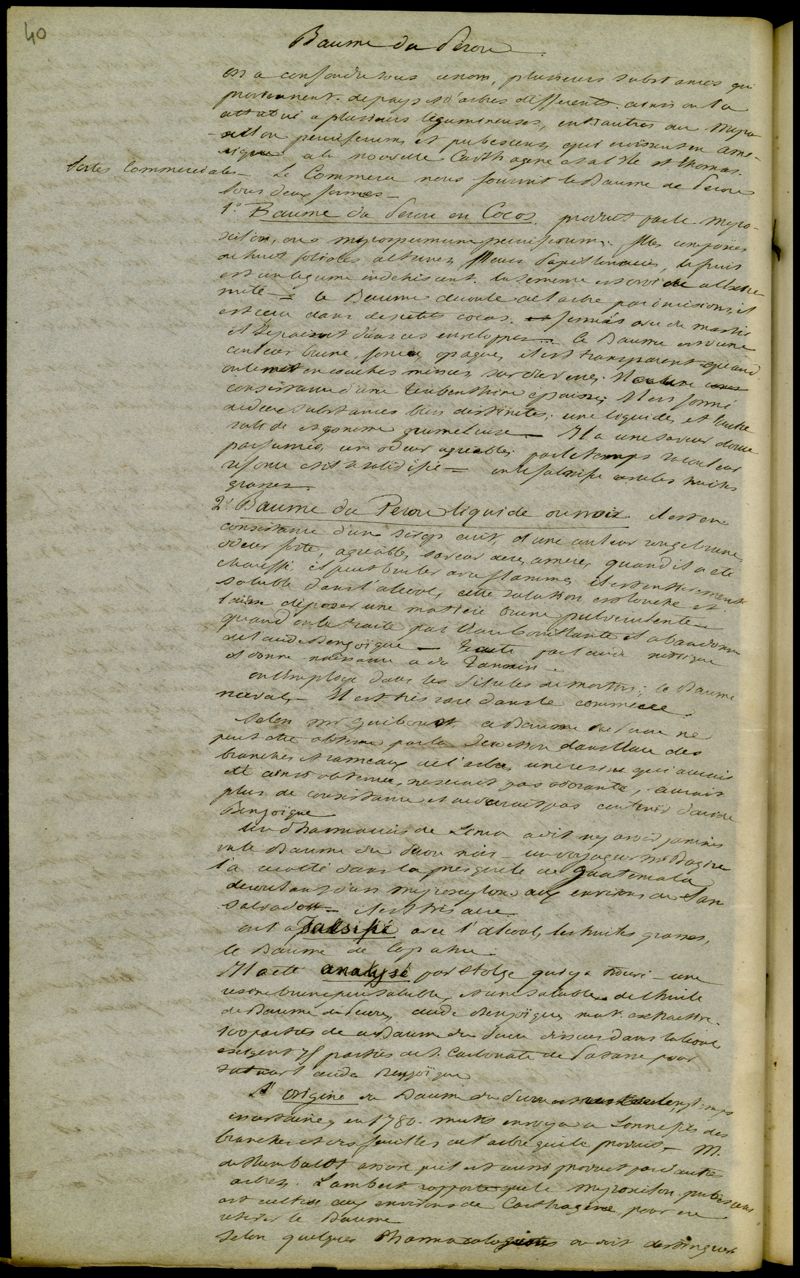 40
Baume du Pérou
on a confondu sous ce nom, plusieurs substances qui
proviennent de pays et d'arbres différents. ainsi on l'a
attribué a plusieurs légumineuses, entr'autres au myro-
xilon peruiferum, et pubescens, qui croissent en amé-
rique a la nouvelle Carthagène et a l'Ile St thomas.
Sortes Commerciales — Le Commerce nous fournit le Baume de Pérou
sous deux formes —
1° Baume du Perou en Cocos, produit par le myro-
xilon, ou myrospermum peruiferum. flles composées
ou huit folioles alternes, fleurs Papillonacées, le fruit
est un légume indéhiscent. la semence est
le Baume découle de l'arbre par incisions, il
est reçu dans de petits cocos. fermés avec du mastic
et s'épaissit dans ces enveloppes — le Baume est d'une
couleur brune, foncée, opaque, il est transparent quand
on le met en couches minces sur du verre. Il a une
consistance d'une Térébenthine épaisse; Il est formé
de deux substances bien distinctes; une liquide, et l'autre
solide et comme grumeleuse — Il a une saveur douce
parfumée, une odeur agréable; par le temps sa couleur
se fonce et il se solidifie — on le falsifie avec les huiles
grasses.
2° Baume du Perou liquide ou noir il est en
consistance d'un sirop cuit, d'une couleur rouge brune,
odeur forte, agréable, saveur acre, amère, quand il a été
chauffé il peut bruler avec flamme, il est entièrement
soluble dans l'alcool, cette solution est louche et
laisse déposer une matière brune pulvérulente
quand on le traite par l'eau bouillante il abandonne
de l'acide Benzoïque — Traité par l'acide nitrique
il donne naissance a du Tannin.
on l'employe dans les Pilules de morton; le Baume
nerval — Il est très rare dans le commerce
Selon Mr Guibourt ce Baume du Pérou ne
peut etre obtenu par la Décoction dans l'eau des
branches et rameaux de l'arbre, une résine qui aurait
été ainsi obtenue, ne serait pas odorante, aurait
plus de consistance et ne devrait pas contenir d'acide
Benzoïque
Un pharmacien de Lima a dit n'y avoir jamais
vu le Baume du Pérou noir — un voyageur Mr Bazire
l'a récolté dans la presqu'ile de Guatemala
découlant d'un myroxylon aux environs de San
Salvador — il est très acre
on l'a falsifié avec l'alcool, les huiles grasses,
le Baume de Copahu.
Il a été analysé par Stolze qui y a trouvé — une
résine brune peu soluble, et une soluble, de l'huile
de Baume de Pérou, acide Benzoïque, mat. extractive.
100 parties de ce Baume du Pérou dissous dans l'alcool
exigent 75 parties de S. Carbonate de Potasse pour
saturer l'acide Benzoïque
L'origine du Baume du Pérou longtemps
incertaine, en 1780. mutis envoya a Linné fils des
branches et des feuilles de l'arbre qui le produit — M.
de Humboldt assure qu'il est aussi produit par d'autres
arbres. Lambert rapporte que le myroxilon pubescens
est cultivé aux environs de Carthagène, pour en
retirer le Baume
Selon quelques Pharmacologistes on doit distinguer